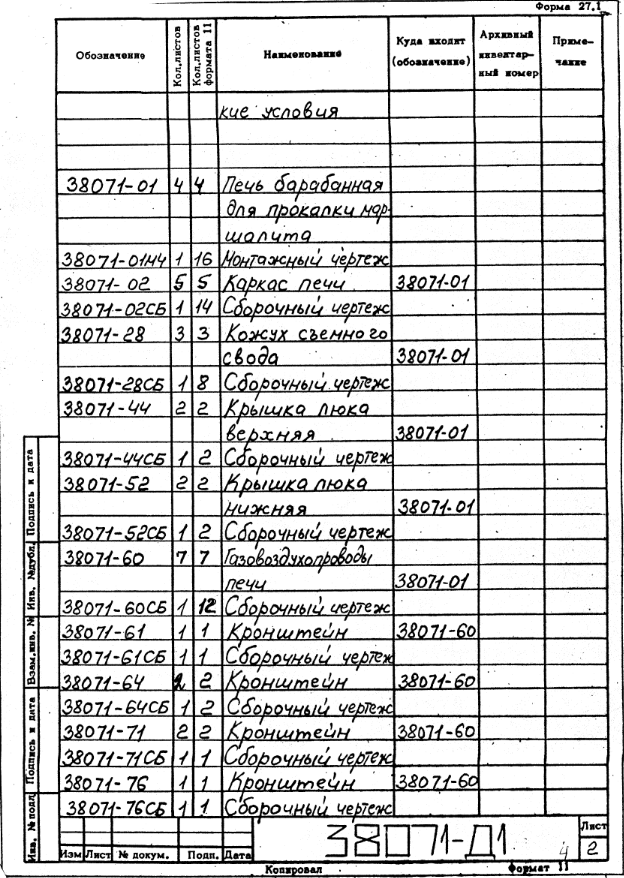 Форма 27.1
Обозначение Кол.листов Кол.листов формата 11 Наименование Куда входит (обозначение) Архивный инвентарный номер Приме-чание
кие условия
38071-01 4 4 Печь барабанная
для прокалки мар-
шалита
38071-01МЧ 1 16 Монтажный чертеж
38071-02 5 5 Каркас печи 38071-01
38071-02СБ 1 14 Сборочный чертеж
38071-28 3 3 Кожух съемного
свода 38071-01
38071-28СБ 1 8 Сборочный чертеж
38071-44 2 2 Крышка люка
верхняя 38071-01
38071-44СБ 1 2 Сборочный чертеж
38071-52 2 2 Крышка люка
нижняя 38071-01
38071-52СБ 1 2 Сборочный чертеж
38071-60 7 7 Газовоздухопроводы
печи 38071-01
38071-60СБ 1 12 Сборочный чертеж
38071-61 1 1 Кронштейн 38071-60
38071-61СБ 1 1 Сборочный чертеж
38071-64 2 2 Кронштейн 38071-60
38071-64СБ 1 2 Сборочный чертеж
38071-71 2 2 Кронштейн 38071-60
38071-71СБ 1 1 Сборочный чертеж
38071-76 1 1 Кронштейн 38071-60
38071-76СБ 1 1 Сборочный чертеж
Подпись и дата
Инв. №дубл.
Взам.инв. №
Подпись и дата
Инв. №подл
Изм Лист № докум. Подп. Дата
38071-Д1
Лист
2
4
Копировал Формат 11